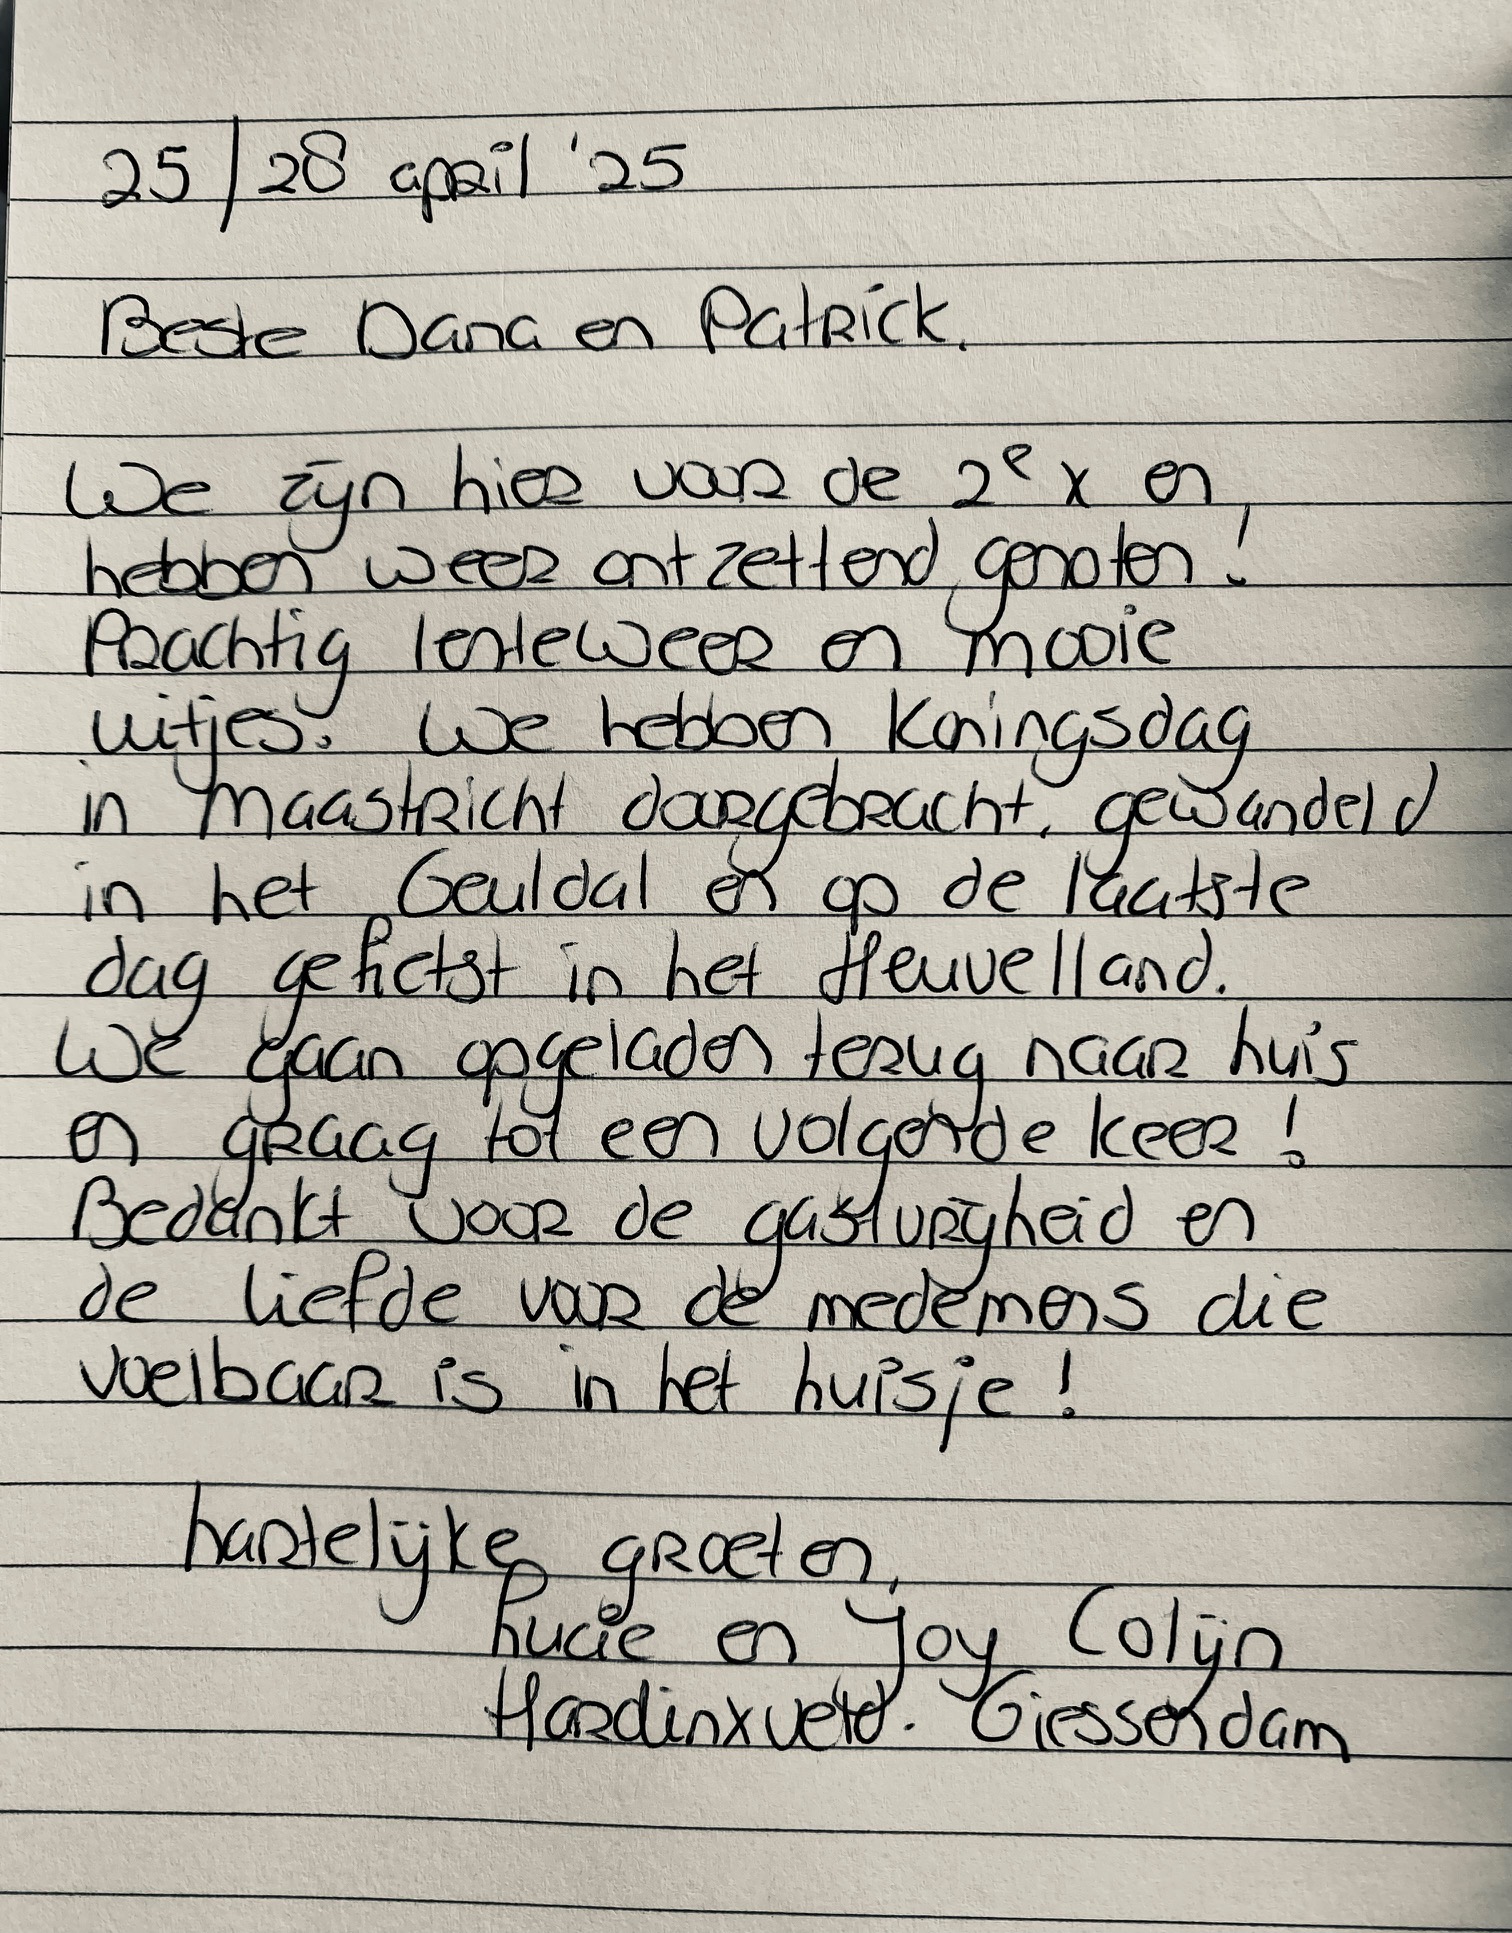 25/28 april '25
Beste Dana en Patrick.
We zijn hier voor de 2e x en
hebben weer ontzettend genoten!
Prachtig lenteweer en mooie
uitjes. We hebben Koningsdag
in Maastricht doorgebracht, gewandeld
in het Geuldal en op de laatste
dag gefietst in het Heuvelland.
We gaan opgeladen terug naar huis
en graag tot een volgende keer!
Bedankt voor de gastvrijheid en
de liefde voor de medemens die
voelbaar is in het huisje!
hartelijke groeten,
Lucie en Joy Colijn
Hardinxveld. Giessendam